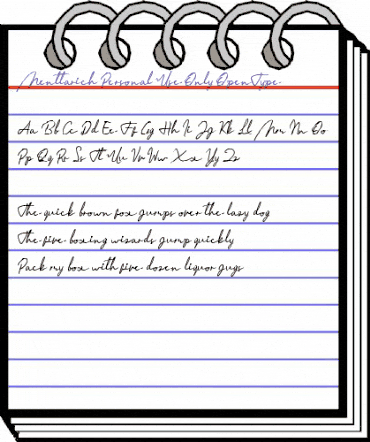 Menttarich Personal Use Only OpenType
Aa Bb Cc Dd Ee Ff Gg Hh Ii Jj Kk Ll Mm Nn Oo
Pp Qq Rr Ss Tt Uu Vv Ww Xx Yy Zz
The quick brown fox jumps over the lazy dog
The five boxing wizards jump quickly
Pack my box with five dozen liquor jugs